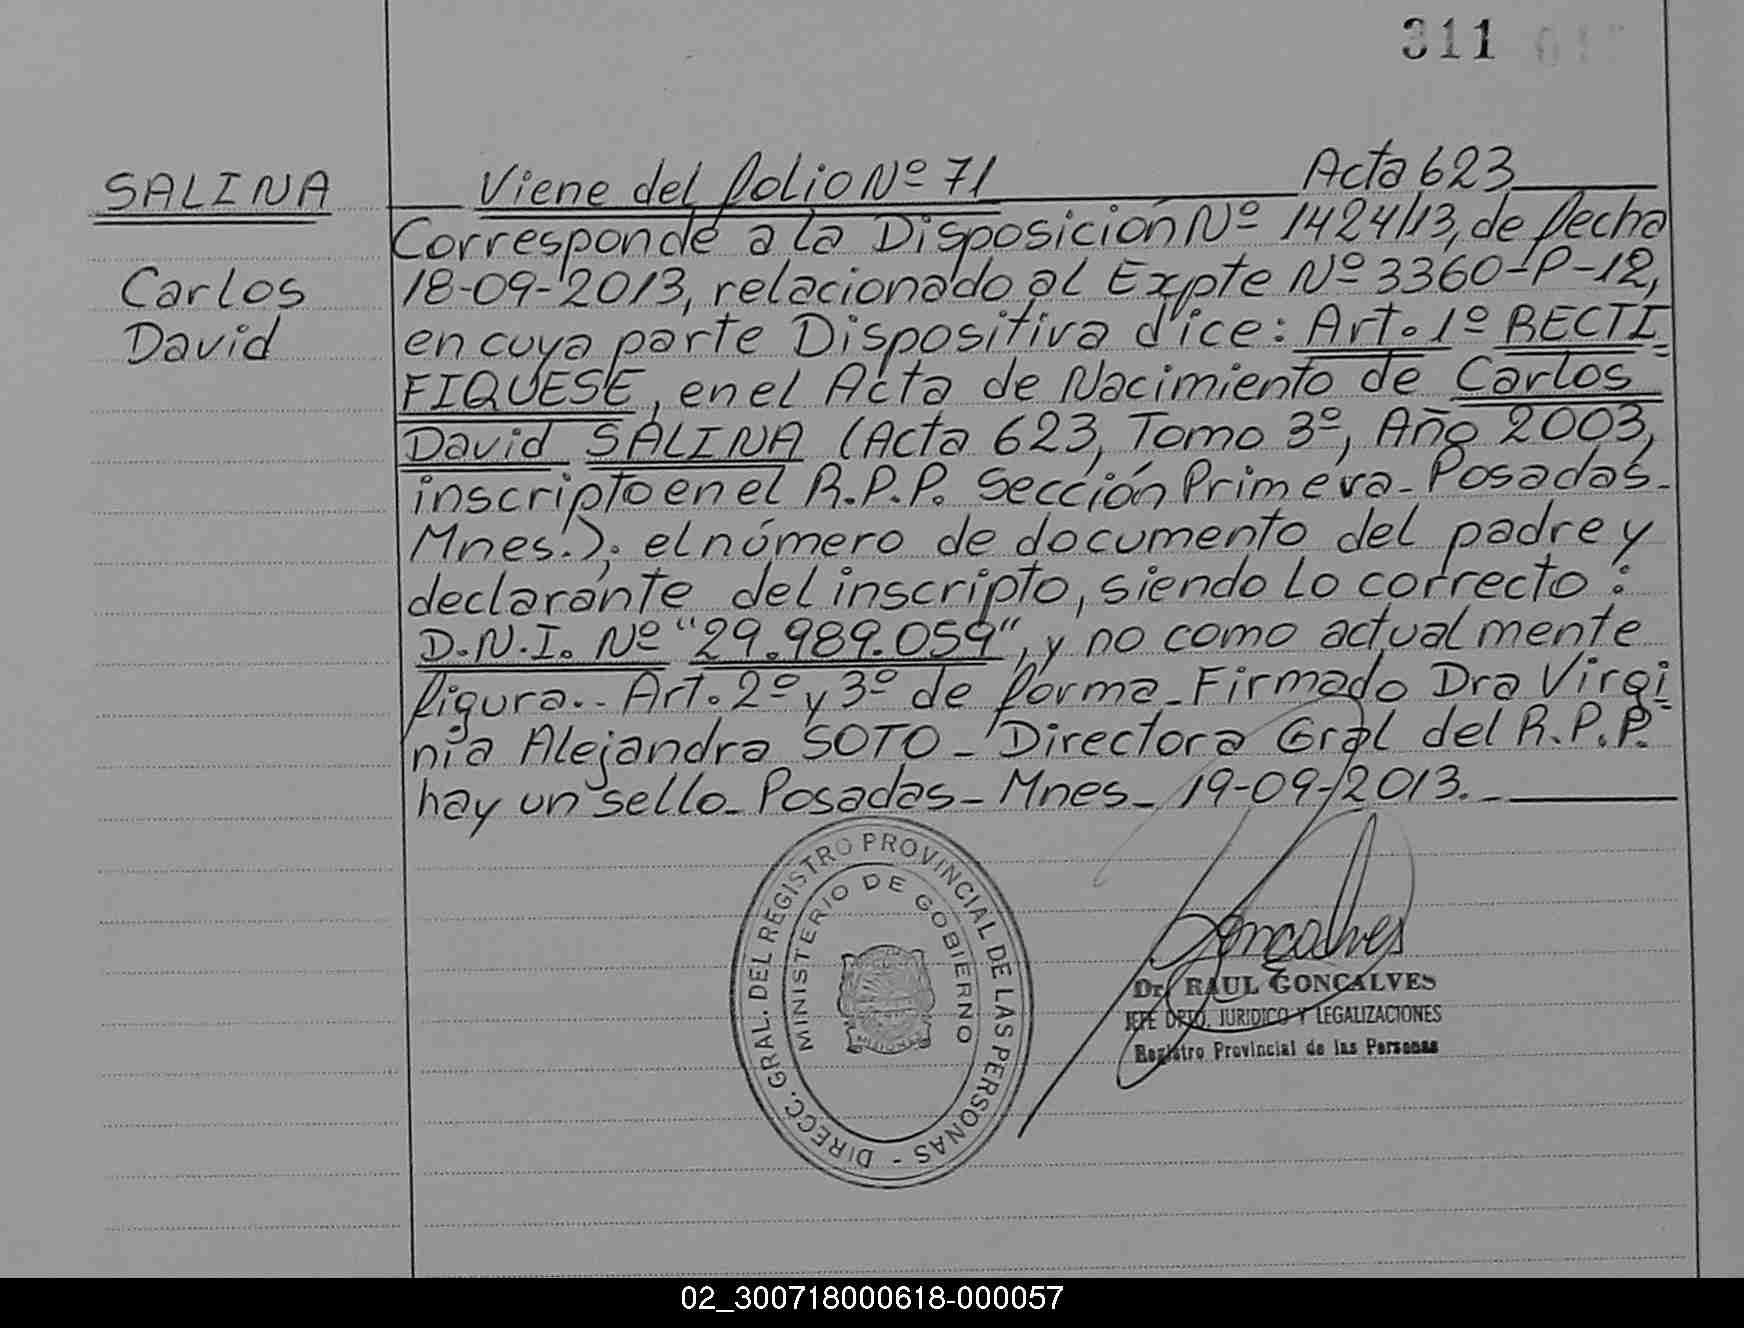 311
SALINA
Carlos
David
Viene del folio Nº 71 Acta 623
Corresponde a la Disposición Nº 1424/13, de fecha
18-09-2013, relacionado al Expte Nº 3360-P-12,
en cuya parte Dispositiva dice: Art. 1º RECTI=
FIQUESE, en el Acta de Nacimiento de Carlos
David SALINA (Acta 623, Tomo 3º, Año 2003,
inscripto en el R.P.P. Sección Primera-Posadas-
Mnes.); el número de documento del padre y
declarante del inscripto, siendo lo correcto:
D.N.I. Nº "29.989.059", y no como actualmente
figura.- Art. 2º y 3º de forma-Firmado Dra Virgi
nia Alejandra SOTO-Directora Gral del R.P.P.-
hay un sello-Posadas-Mnes-19-09-2013.-
DIRECC. GRAL. DEL REGISTRO PROVINCIAL DE LAS PERSONAS -
MINISTERIO DE GOBIERNO
MISIONES
Goncalves
Dr. RAUL GONCALVES
JEFE DPTO. JURIDICO Y LEGALIZACIONES
Registro Provincial de las Personas
02_300718000618-000057